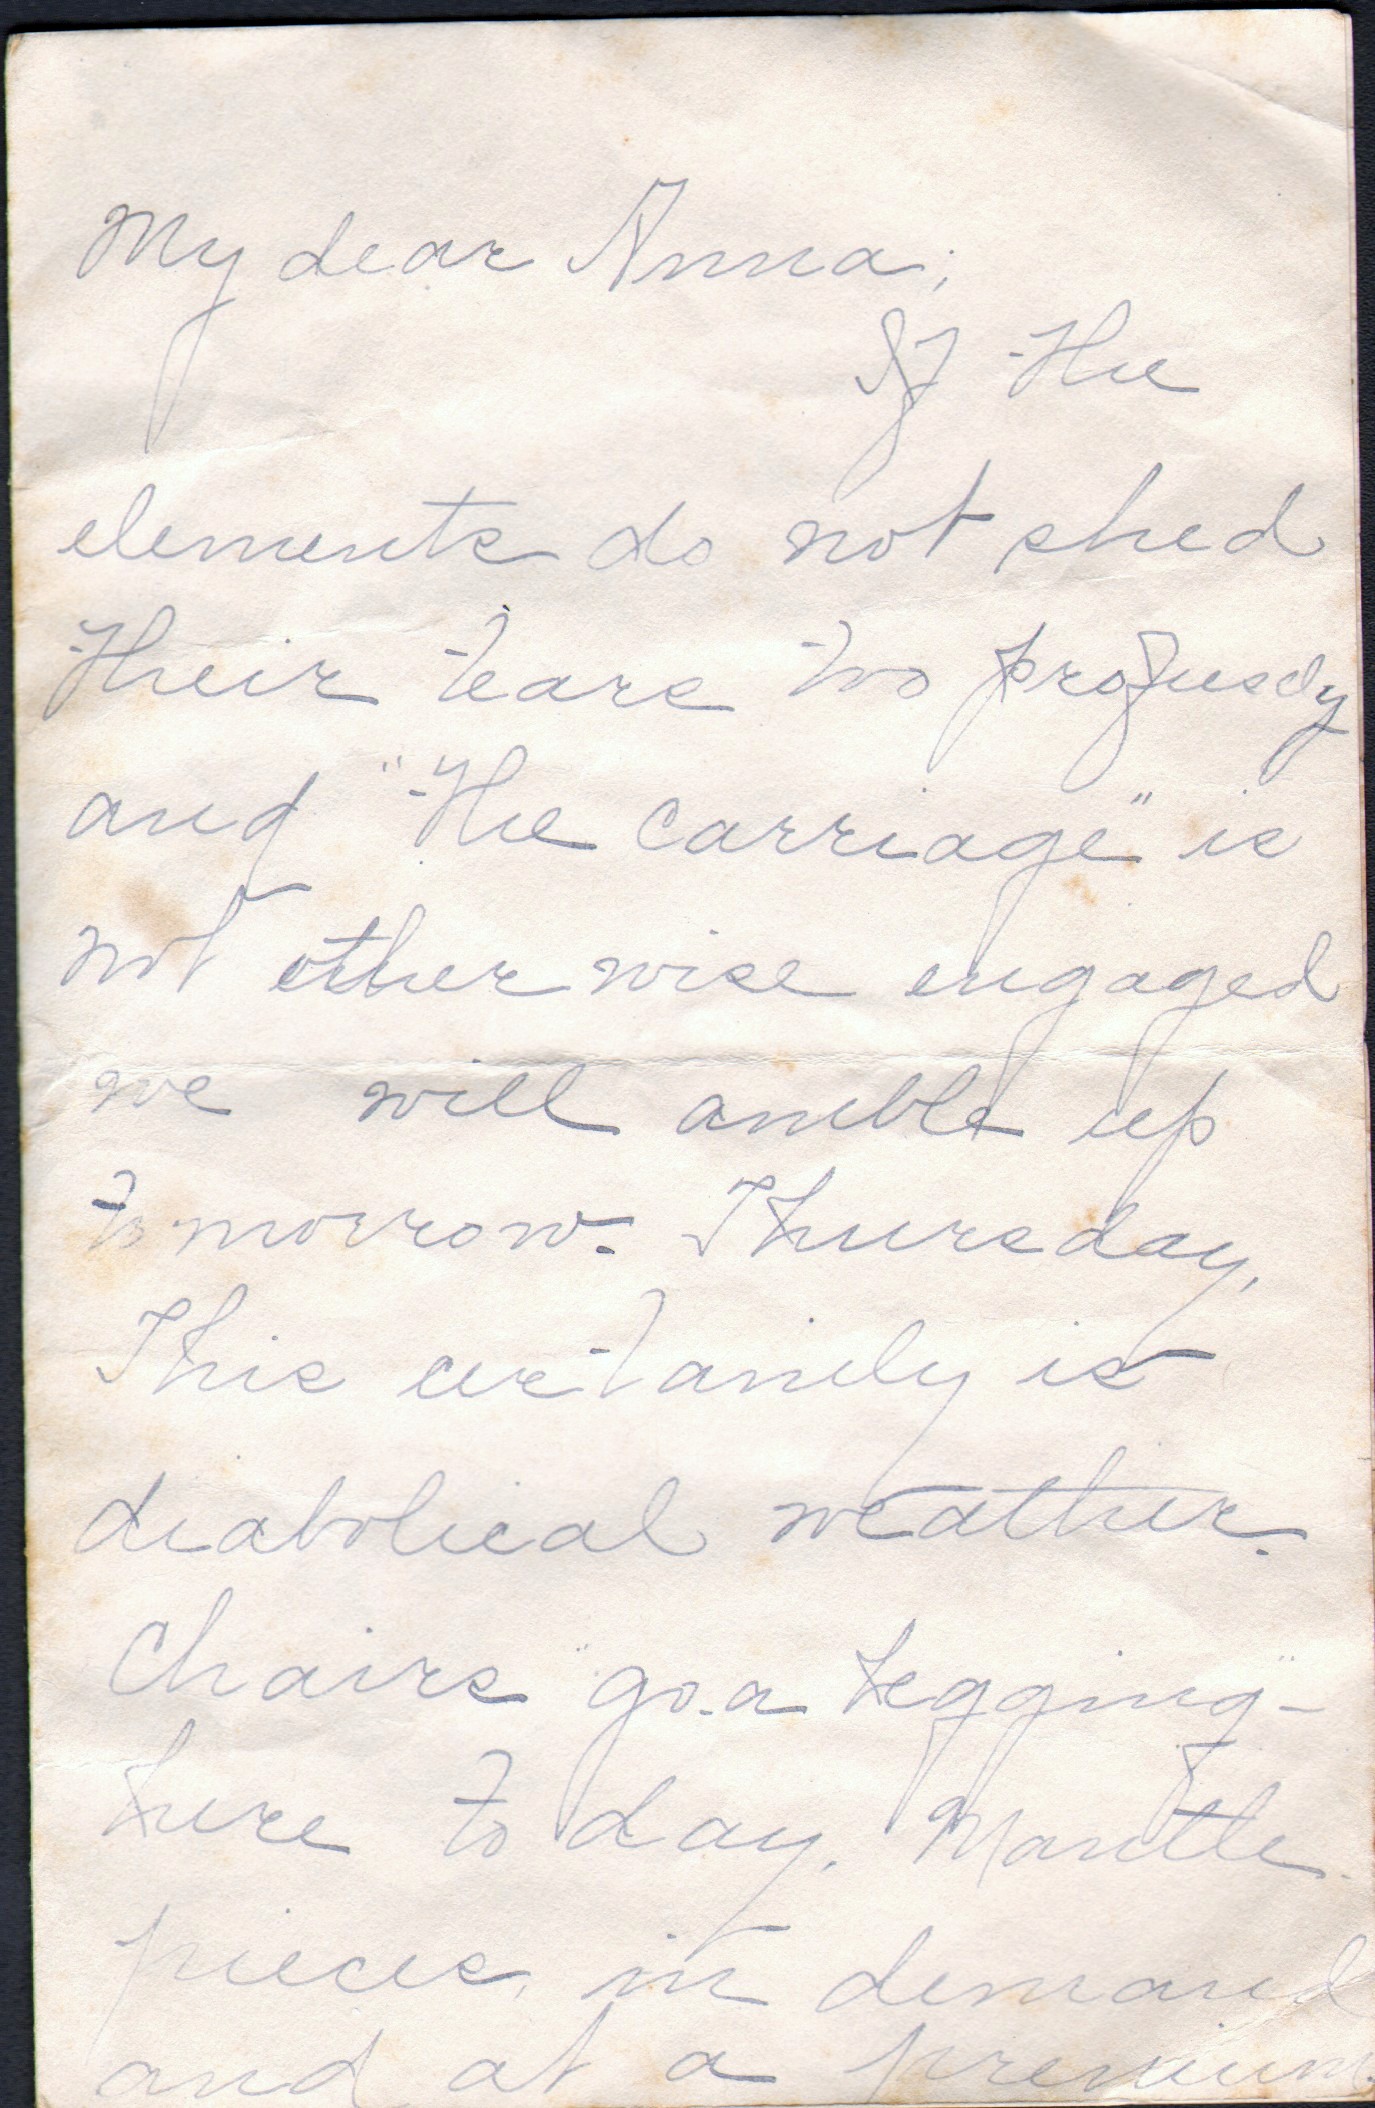 My dear Anna;
If the
elements do not shed
their tears too profusely
and "the carriage" is
not otherwise engaged
we will amble up
tomorrow. Thursday.
This certainly is
diabolical weather.
Chairs "go-a begging"-
here to day. Mantle
pieces in demand
and at a premium.